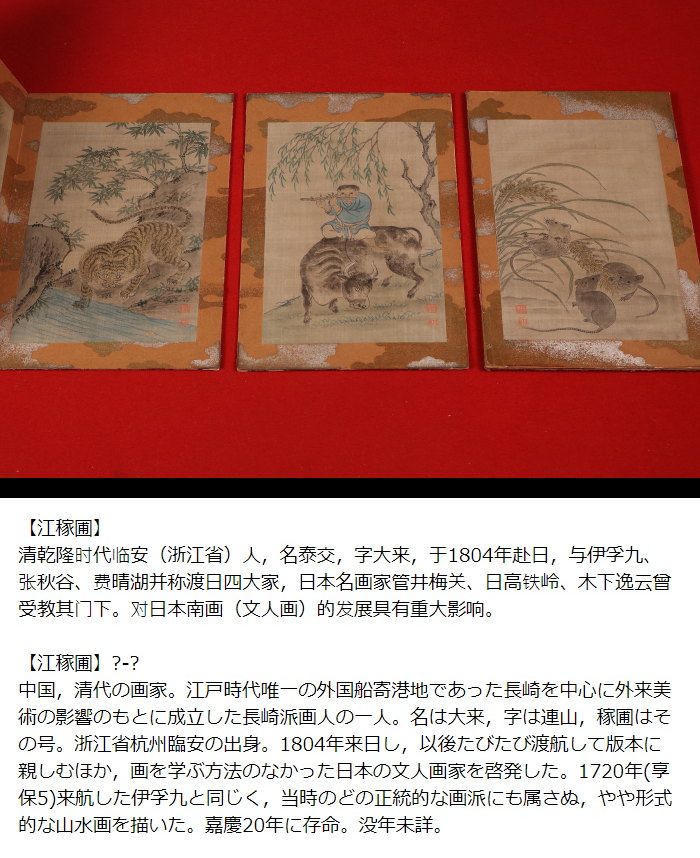 【江稼圃】
清乾隆时代临安（浙江省）人，名泰交，字大来，于1804年赴日，与伊孚九、
张秋谷、费晴湖并称渡日四大家，日本名画家管井梅关、日高铁岭、木下逸云曾
受教其门下。对日本南画（文人画）的发展具有重大影响。
【江稼圃】?-?
中国，清代の画家。江戸時代唯一の外国船寄港地であった長崎を中心に外来美
術の影響のもとに成立した長崎派画人の一人。名は大来，字は連山，稼圃はそ
の号。浙江省杭州臨安の出身。1804年来日し，以後たびたび渡航して版本に
親しむほか，画を学ぶ方法のなかった日本の文人画家を啓発した。1720年(享
保5)来航した伊孚九と同じく，当時のどの正統的な画派にも属さぬ，やや形式
的な山水画を描いた。嘉慶20年に存命。没年未詳。